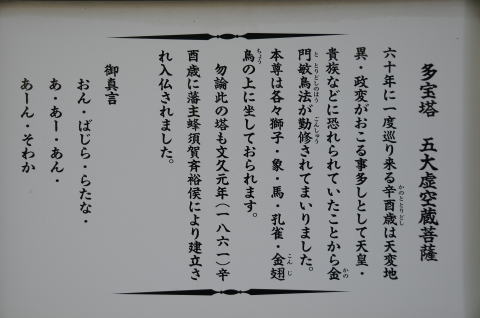 多宝塔　五大虚空蔵菩薩
六十年に一度巡り来る辛酉歳は天変地
異・政変がおこる事多しとして天皇・
貴族などに恐れられていたことから金
門敏鳥法が勤修されてまいりました。
本尊は各々獅子・象・馬・孔雀・金翅
鳥の上に坐しておられます。
勿論此の塔も文久元年（一八六一）辛
酉歳に藩主蜂須賀斉裕侯により建立さ
れ入仏されました。
御真言
おん・ばじら・らたな・
あ・あー・あん・
あーん・そわか